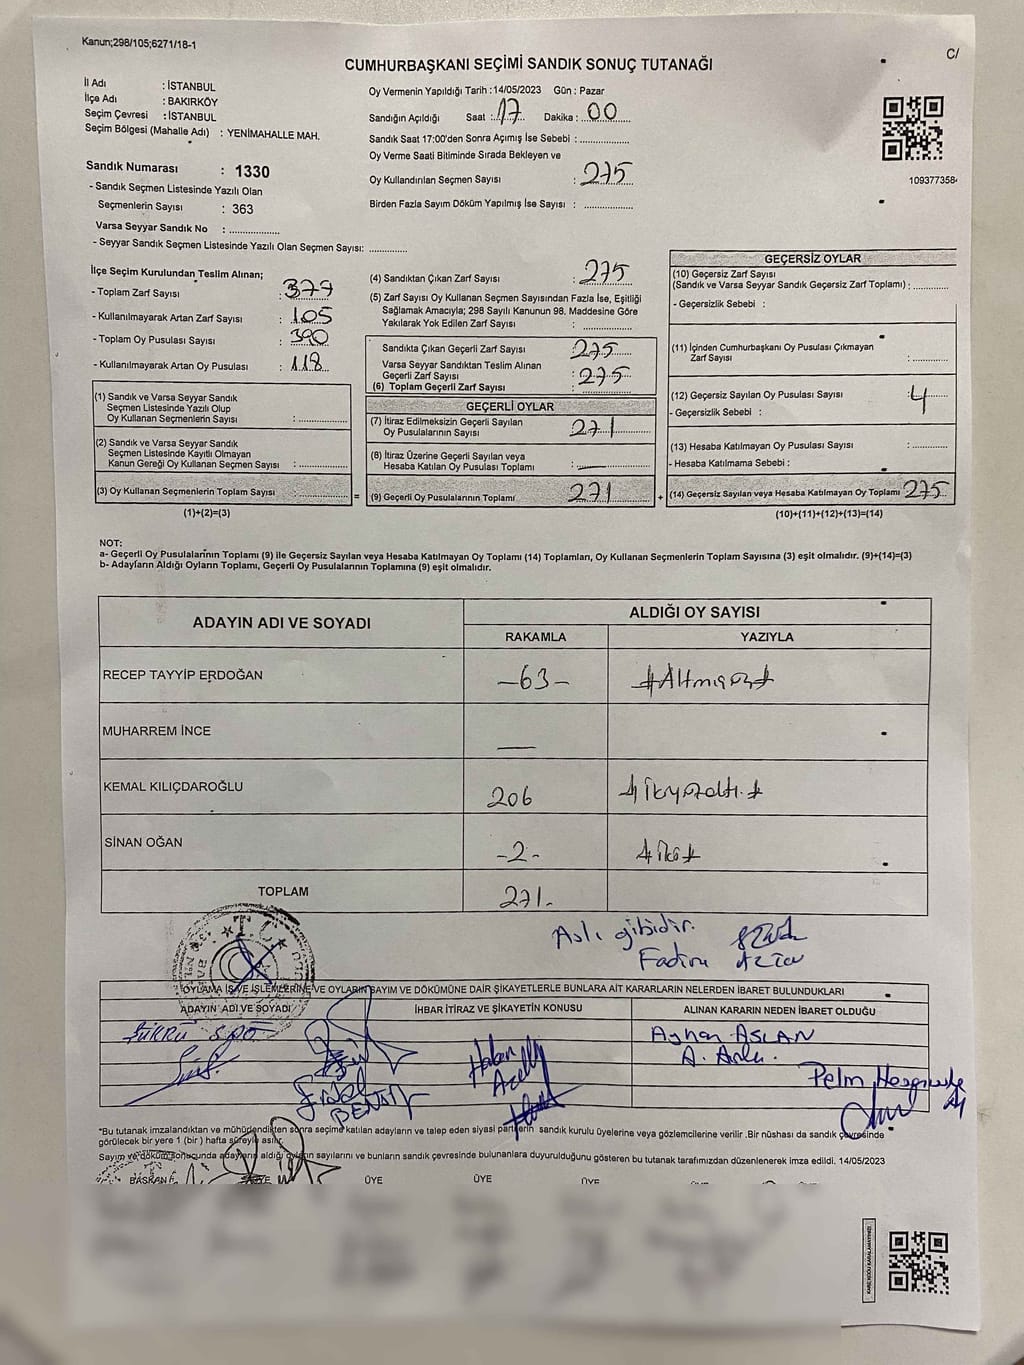 Kanun;298/105;6271/18-1
C/
CUMHURBAŞKANI SEÇİMİ SANDIK SONUÇ TUTANAĞI
İl Adı : İSTANBUL
İlçe Adı : BAKIRKÖY
Seçim Çevresi : İSTANBUL
Seçim Bölgesi (Mahalle Adı) : YENİMAHALLE MAH.
Oy Vermenin Yapıldığı Tarih :14/05/2023 Gün : Pazar
Sandığın Açıldığı Saat :..17.... Dakika :..00....
Sandık Saat 17:00'den Sonra Açımış İse Sebebi :..................
Oy Verme Saati Bitiminde Sırada Bekleyen ve
Oy Kullandırılan Seçmen Sayısı : 275
Birden Fazla Sayım Döküm Yapılmış İse Sayısı : ..................
109377358
Sandık Numarası : 1330
- Sandık Seçmen Listesinde Yazılı Olan
Seçmenlerin Sayısı : 363
Varsa Seyyar Sandık No : ..................
- Seyyar Sandık Seçmen Listesinde Yazılı Olan Seçmen Sayısı: ..............
İlçe Seçim Kurulundan Teslim Alınan;
- Toplam Zarf Sayısı : 377
- Kullanılmayarak Artan Zarf Sayısı : 105
- Toplam Oy Pusulası Sayısı : 390
- Kullanılmayarak Artan Oy Pusulası : 118
(1) Sandık ve Varsa Seyyar Sandık
Seçmen Listesinde Yazılı Olup
Oy Kullanan Seçmenlerin Sayısı : ..................
(2) Sandık ve Varsa Seyyar Sandık
Seçmen Listesinde Kayıtlı Olmayan
Kanun Gereği Oy Kullanan Seçmen Sayısı : ..................
(3) Oy Kullanan Seçmenlerin Toplam Sayısı : .................. =
(1)+(2)=(3)
(4) Sandıktan Çıkan Zarf Sayısı : 275
(5) Zarf Sayısı Oy Kullanan Seçmen Sayısından Fazla İse, Eşitliği
Sağlamak Amacıyla; 298 Sayılı Kanunun 98. Maddesine Göre
Yakılarak Yok Edilen Zarf Sayısı : ..................
Sandıkta Çıkan Geçerli Zarf Sayısı 275
Varsa Seyyar Sandıktan Teslim Alınan
Geçerli Zarf Sayısı : 275
(6) Toplam Geçerli Zarf Sayısı :
GEÇERLİ OYLAR
(7) İtiraz Edilmeksizin Geçerli Sayılan
Oy Pusulalarının Sayısı 271
(8) İtiraz Üzerine Geçerli Sayılan veya
Hesaba Katılan Oy Pusulası Toplamı : —
(9) Geçerli Oy Pusulalarının Toplamı : 271 +
GEÇERSİZ OYLAR
(10) Geçersiz Zarf Sayısı
(Sandık ve Varsa Seyyar Sandık Geçersiz Zarf Toplamı) : ..............
- Geçersizlik Sebebi :
(11) İçinden Cumhurbaşkanı Oy Pusulası Çıkmayan
Zarf Sayısı : ..............
(12) Geçersiz Sayılan Oy Pusulası Sayısı : 4
- Geçersizlik Sebebi :
(13) Hesaba Katılmayan Oy Pusulası Sayısı : ..............
- Hesaba Katılmama Sebebi :
(14) Geçersiz Sayılan veya Hesaba Katılmayan Oy Toplamı 275
(10)+(11)+(12)+(13)=(14)
NOT:
a- Geçerli Oy Pusulalarının Toplamı (9) ile Geçersiz Sayılan veya Hesaba Katılmayan Oy Toplamı (14) Toplamları, Oy Kullanan Seçmenlerin Toplam Sayısına (3) eşit olmalıdır. (9)+(14)=(3)
b- Adayların Aldığı Oyların Toplamı, Geçerli Oy Pusulalarının Toplamına (9) eşit olmalıdır.
ADAYIN ADI VE SOYADI ALDIĞI OY SAYISI
RAKAMLA YAZIYLA
RECEP TAYYİP ERDOĞAN -63- #Altmışüç#
MUHARREM İNCE —
KEMAL KILIÇDAROĞLU 206 #ikiyüzaltı.#
SİNAN OĞAN -2- #iki#
TOPLAM 271.
T.C.
Aslı gibidir.
Fadim
OYLAMA İŞ VE İŞLEMLERİNE VE OYLARIN SAYIM VE DÖKÜMÜNE DAİR ŞİKAYETLERLE BUNLARA AİT KARARLARIN NELERDEN İBARET BULUNDUKLARI
ADAYIN ADI VE SOYADI İHBAR İTİRAZ VE ŞİKAYETİN KONUSU ALINAN KARARIN NEDEN İBARET OLDUĞU
ŞÜKRÜ
Ayhan ASLAN
Hakan
Pelin
*Bu tutanak imzalandıktan ve mühürlendikten sonra seçime katılan adayların ve talep eden siyasi partilerin sandık kurulu üyelerine veya gözlemcilerine verilir .Bir nüshası da sandık çevresinde
görülecek bir yere 1 (bir ) hafta süreyle asılır.
Sayım ve döküm sonucunda adayların aldığı oyların sayılarını ve bunların sandık çevresinde bulunanlara duyurulduğunu gösteren bu tutanak tarafımızdan düzenlenerek imza edildi. 14/05/2023
BAŞKAN ÜYE ÜYE ÜYE ÜYE